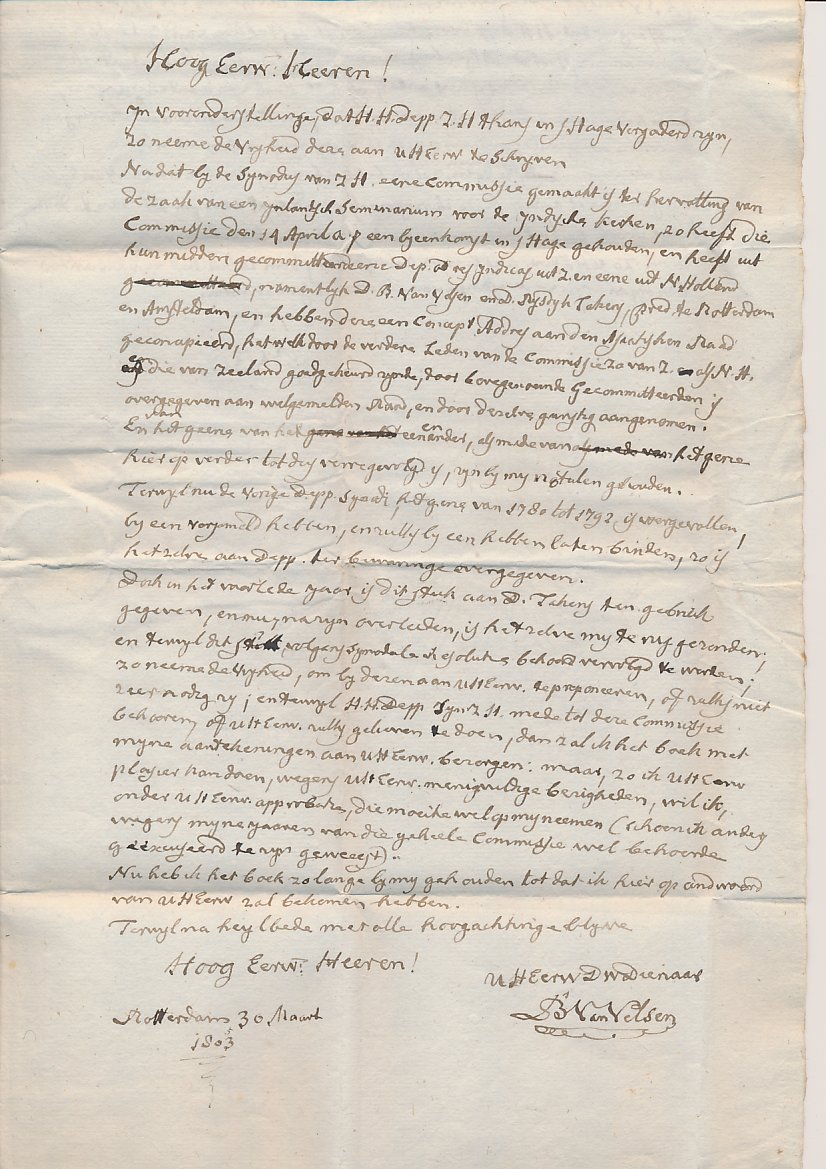 Hoog Eerw: Heeren!
Jn voorenderstellinge, dat H.H. Depp Z. H thans in s Hage Vergaderd zyn,
zo neeme de Vryheid deze aan UHEerw te Schryven
Nadat by de Synodus van Z H. eene Commissie gemaakt is ter hervatting van
de zaak van een ynlantsch Seminarium voor de yndische kerken, zo heeft die
Commissie den 14 April a. p een byeenkomst in s Hage gehouden, en heeft uit
hun midden gecommitteerd eene Dep. ad res yndicas uit Z. en eene uit N. Holland
namentlyk D. B. Van Velsen en d. Takens, pred. te Rotterdam
en Amsteldam, en hebben deze een Concept Addres aan den Asiatischen Raad
geconcipieerd, het welk door de verdere Leden van de Commissie zo van Z. als N. H.
die van Zeeland goedgekeurd zynde, door bovegenoemde Gecommitteerden is
overgegeven aan welgemelden Raad, en door dezelve gunstig aangenomen.
En van het geene van het een en ander, als mede van het gene
hier op verder tot dus verre gevolgd is, zyn by my notulen gehouden.
Terwyl nu de Vorige Depp. Synodi, het gene van 1780 tot 1792 is voorgevallen,
by een verzameld hebben, en zulks by een hebben laten binden, zo is
het zelve aan Depp. ter bewaringe overgegeven.
Doch in het voorlede yaar is dit stuk aan D. Takens ten gebruik
gegeven, en nu, na zyn overleeden, is het zelve my te rug gezonden;
en terwyl dit volgens Synodale resolutie behoord vervolgd te worden;
zo neeme de vryheid, om by dezen aan UHEerw. te proponeeren, of zulks niet
zeer nodig zy; en terwyl H.H. Depp Syn Z H. mede tot deze Commissie
behooren, of UHEerw. zulks gelieven te doen, dan zal ik het boek met
myne aantekeningen aan UHEerw. bezorgen: maar, zo ik UHEerw
plaisier kan doen, wegens UHEerw. menigvuldige bezigheden, wil ik,
onder UHEerw. approbatie, die moeite wel op my neemen (schoon ik anders
wegens myne yaaren van die geheele Commissie wel behoorde
geëxcuseerd te zyn geweest).
Nu heb ik het boek zo lange by my gehouden tot dat ik hier op andwoord
van UHEerw zal bekomen hebben.
Terwyl na heylbede met alle hoogachtinge blyve
Hoog Eerw: Heeren!
UHEerw DwDienaar
B Van Velsen
Rotterdam 30 Maart
1803